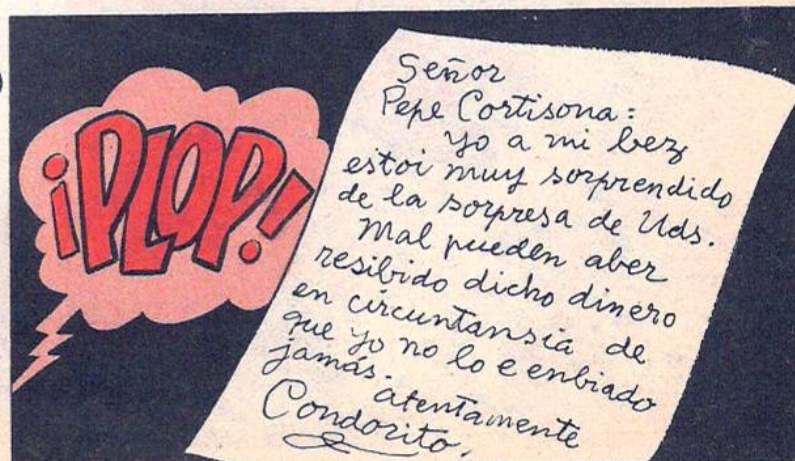 ¡PLOP!
Señor
Pepe Cortisona:
Yo a mi bez
estoi muy sorprendido
de la sorpresa de Uds.
Mal pueden aber
resibido dicho dinero
en circuntansia de
que yo no lo e enbiado
jamás.
atentamente
Condorito.